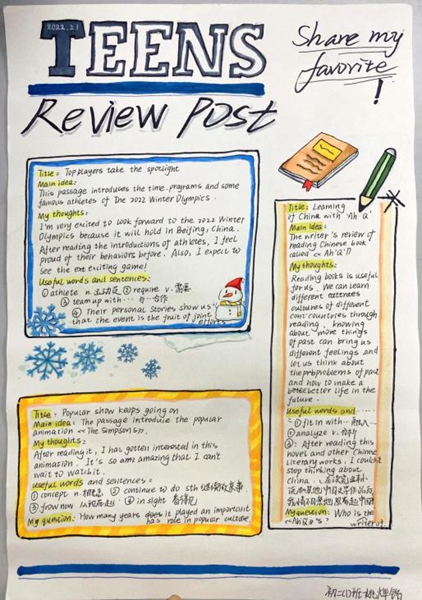 2022.2.1
TEENS
Share my
favorite
!
Review Post
Title: Top players take the spotlight
Main idea:
This passage introduces the time, programs and some
famous athletes of the 2022 Winter Olympics.
My thoughts:
I'm very excited to look forward to the 2022 Winter
Olympics because it will hold in Beijing, China.
After reading the introductions of athletes, I feel
proud of their behaviors before. Also, I expect to
see the exciting game!
Useful words and sentences:
① athlete n. 运动员 ② require v. 需要
③ team up with... 与…合作
④ Their personal stories show us
that the event is the fruit of joint
efforts.
Title: Learning
of China with 'Ah Q'
Main idea:
The writer's review of
reading Chinese book
called << Ah Q >>
My thoughts:
Reading books is useful
for us. We can learn
different
cultures of different
countries through
reading, knowing
about more things
of past can bring us
different feelings and
let us think about
the problems of past
and how to make a
better life in the
future.
Useful words and ······
① fit in with ···
② analyze v. 分析
③: After reading this
novel and other Chinese
literary works, I couldn't
stop thinking about
China.
My question: Who is the
writer of
<<Ah Q>>?
Title: Popular show keeps going on
Main idea: The passage introduce the popular
animation << The Simpsons >>.
My thoughts:
After reading it, I has gotten interested in this
animation. It's so amazing that I can't
wait to watch it.
Useful words and sentences:
① concept n. 概念 ② continue to do sth 继续做某事
③ from now 从现在起 ④ in sight 看得见
My question: How many years does it played an important
role in popular culture